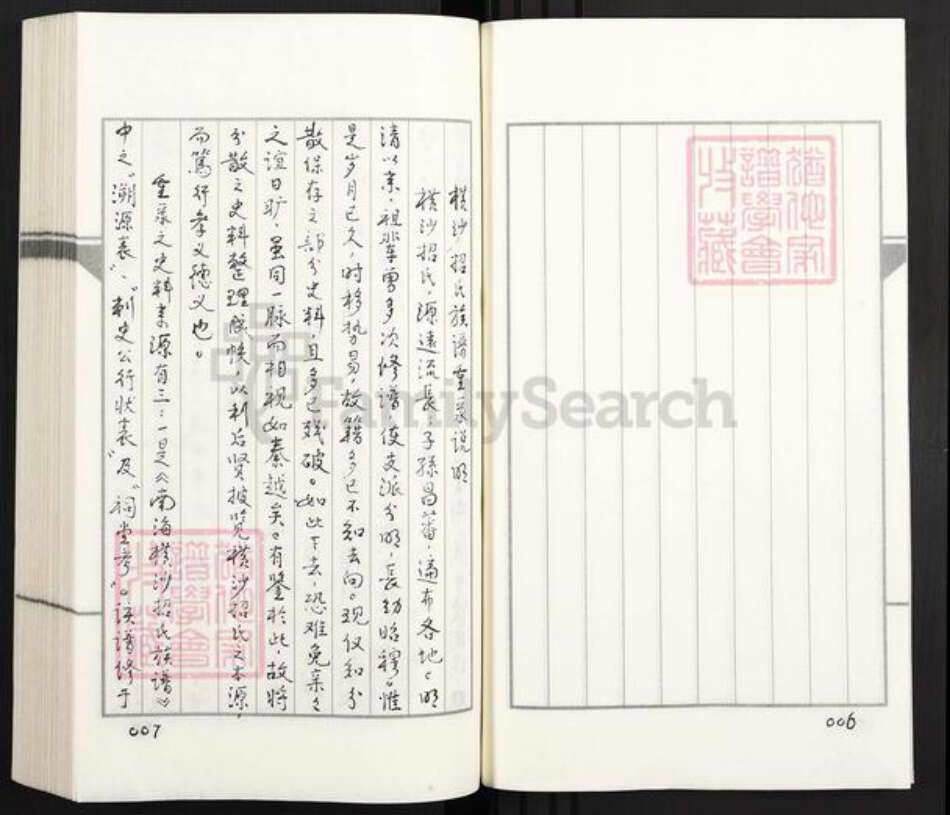 猶他家
譜學會
收藏
006
横沙招氏族谱重录说明
横沙招氏，源遠流長，子孫昌蕃，遍布各地。明
清以来，祖辈曾多次修谱，使支派分明，長幼昭穆。惟
是岁月已久，时移势易，故籍多已不知去向。现仅知分
散保存之部分史料，且多已残破。如此下去，恐难免亲亲
之谊日旷，虽同一脉而相视如秦越矣。有鉴於此，故將
分散之史料整理成帙，以利后贤披览横沙招氏之本源，
而篤行孝义德义也。
重录之史料来源有三：一是《南海横沙招氏族谱》
中之“溯源表”、“刺史公行状表”及“祠堂考”。该谱修于
猶他家
譜學會
收藏
007
FamilySearch